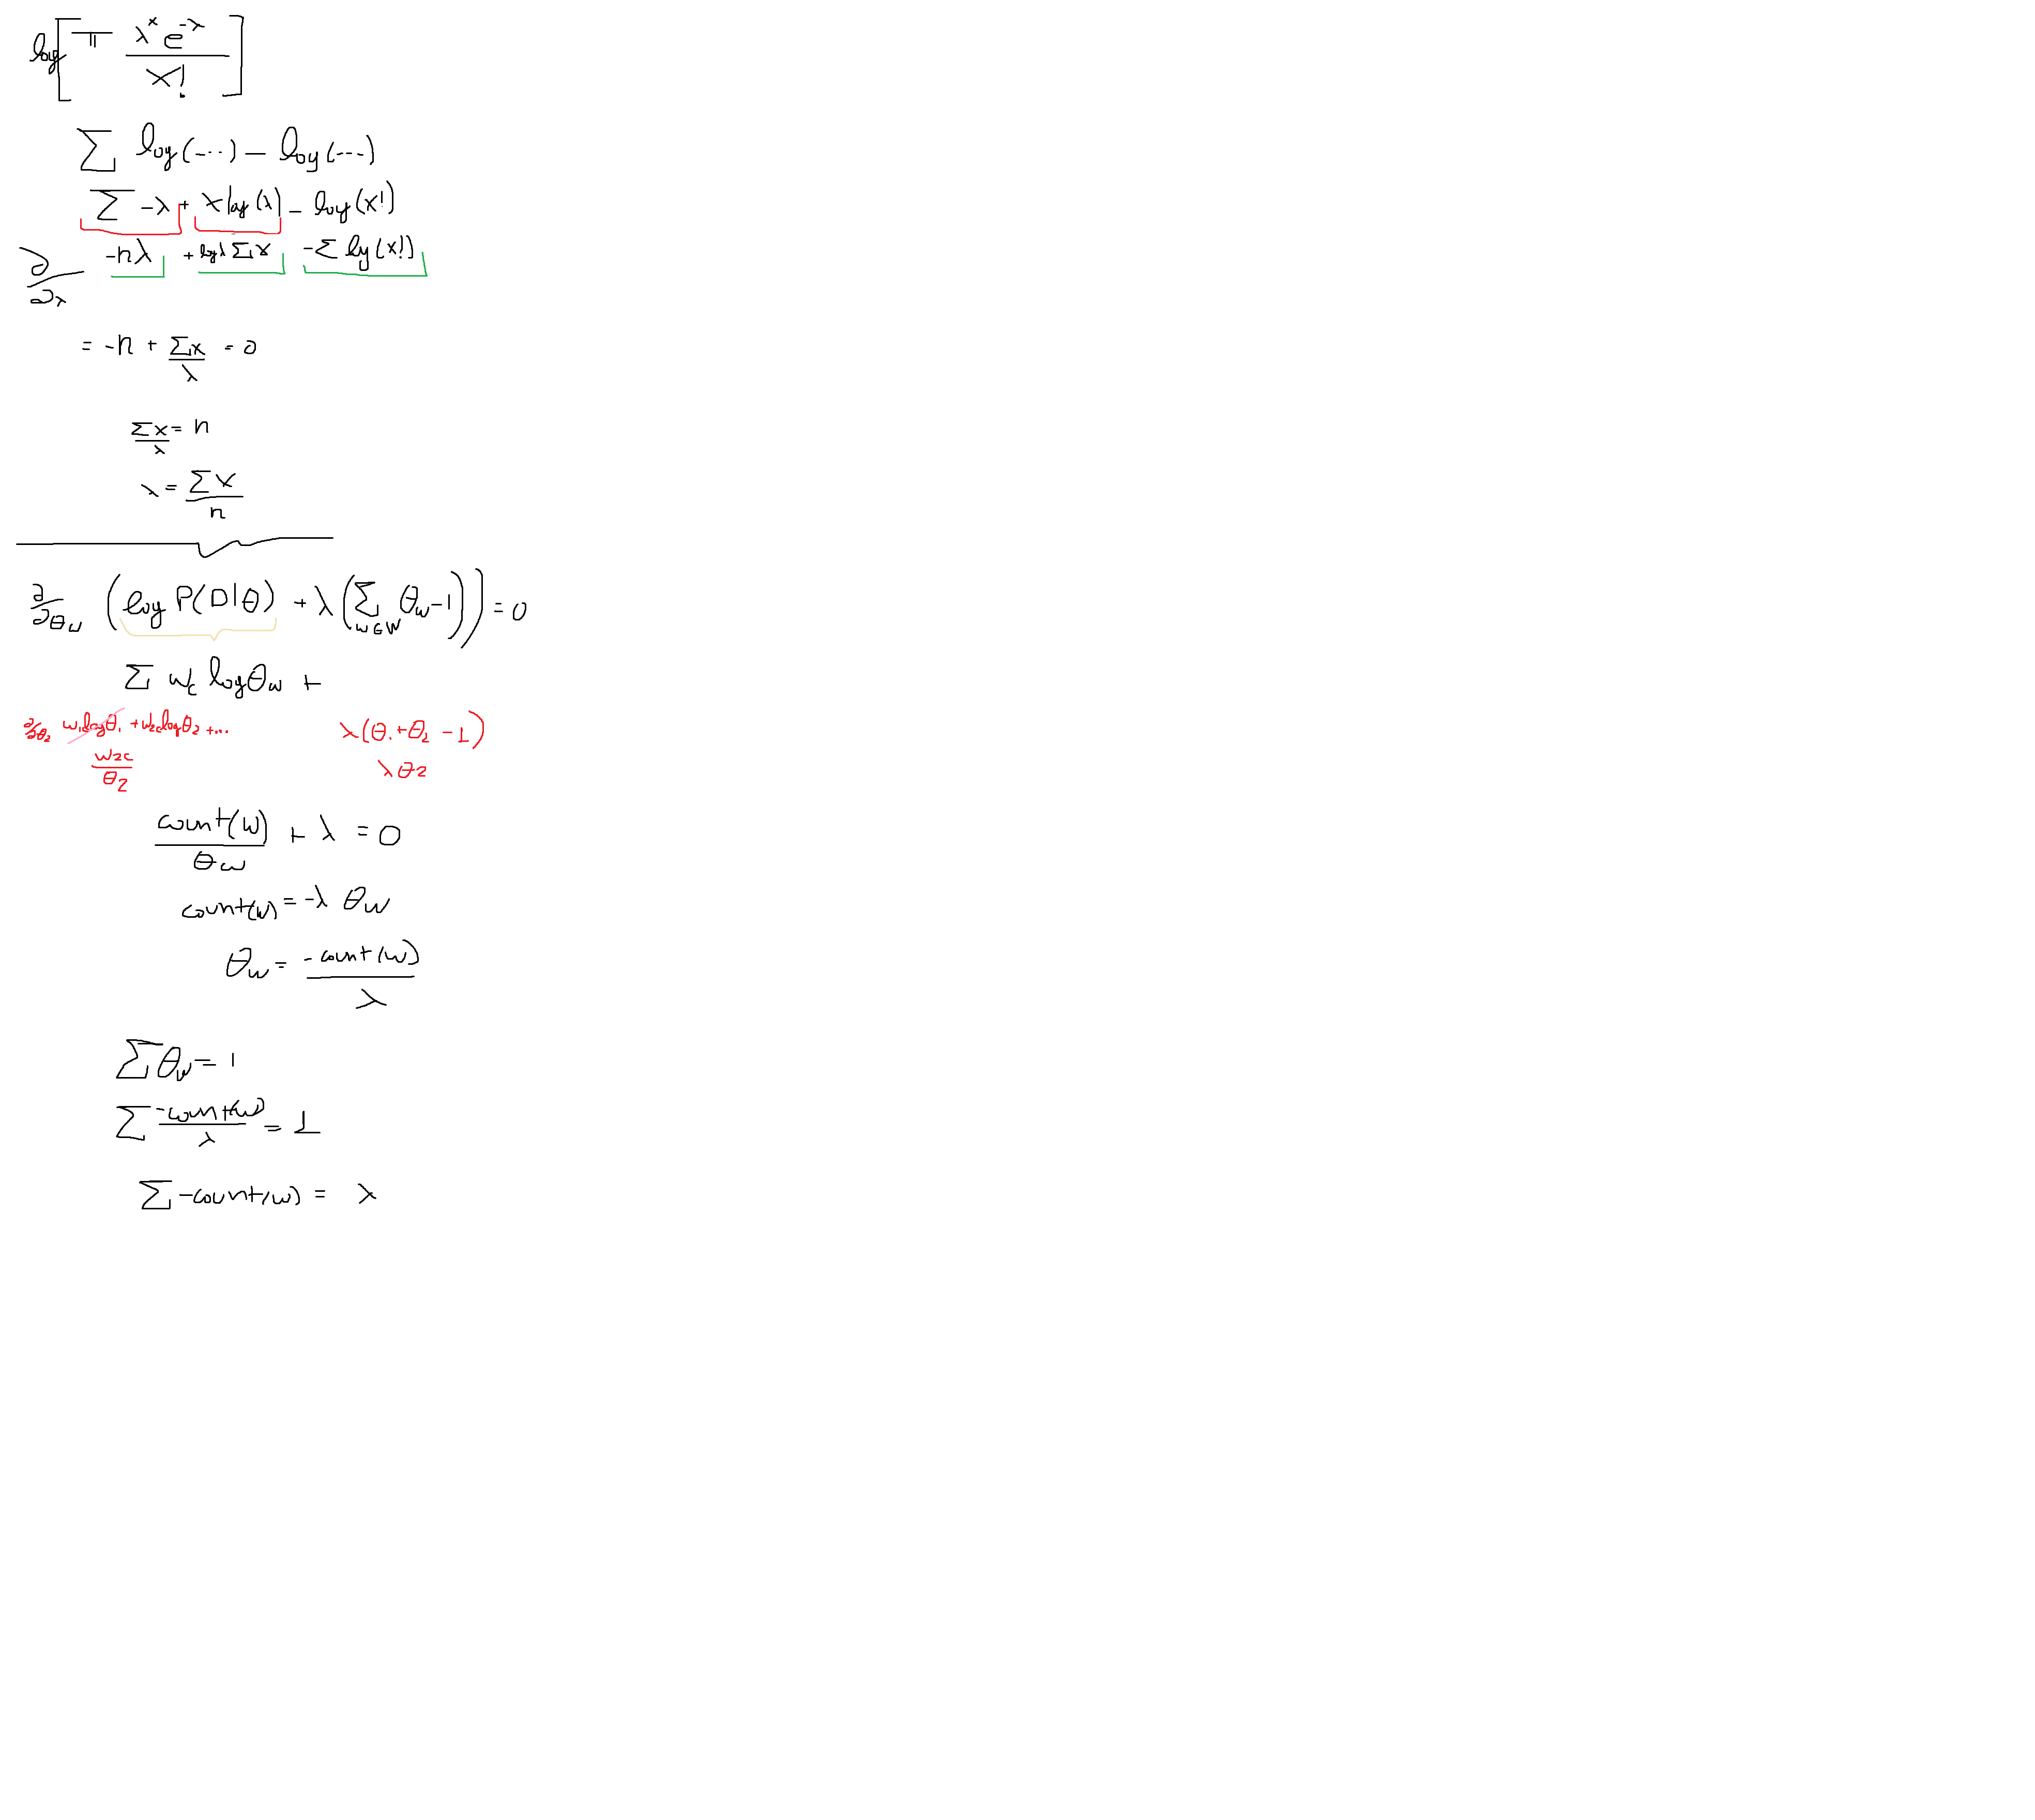 log[ Π λ^x e^-λ / x! ]
Σ log(...) - log(...)
Σ -λ + x log(λ) - log(x!)
∂/∂λ -nλ + logλ Σx - Σ log(x!)
= -n + Σx/λ = 0
Σx/λ = n
λ = Σx/n
∂/∂θw (log P(D|θ) + λ(Σ w∈W θw - 1)) = 0
Σ wc log θw +
∂/∂θ2 w1c log θ1 + w2c log θ2 + ... λ(θ1 + θ2 - 1)
w2c/θ2 λθ2
count(w)/θw + λ = 0
count(w) = -λ θw
θw = -count(w)/λ
Σ θw = 1
Σ -count(w)/λ = 1
Σ -count(w) = λ